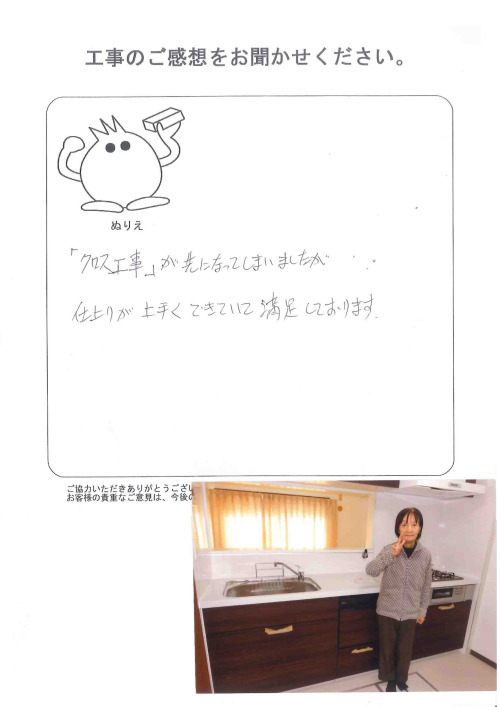 工事のご感想をお聞かせください。
ぬりえ
「クロス工事」が先になってしまいましたが・・。
仕上りが上手くできていて満足しております。
ご協力いただきありがとうござい
お客様の貴重なご意見は、今後の